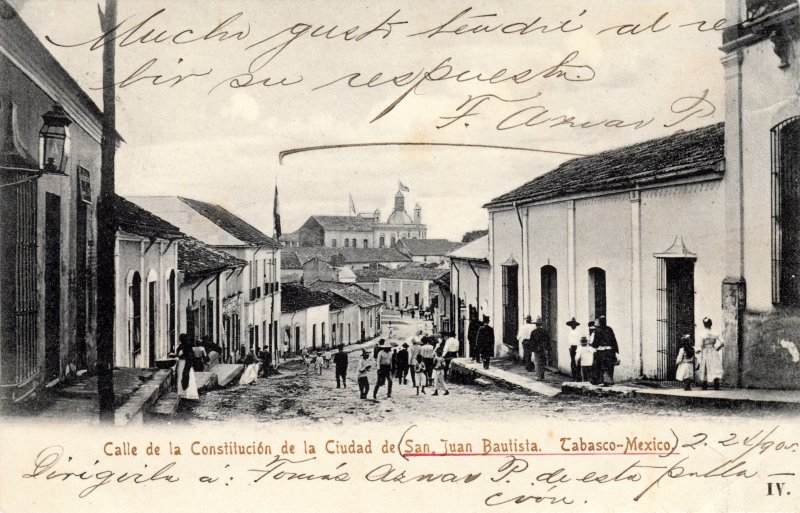 Mucho gusto tendré al re
bir su respuesta.
F. Aznar P.
Calle de la Constitución de la Ciudad de (San Juan Bautista. Tabasco-Mexico) 2. 24/900.
Dirigirla á: Tomás Aznar P. de esta pobla-
ción.
IV.